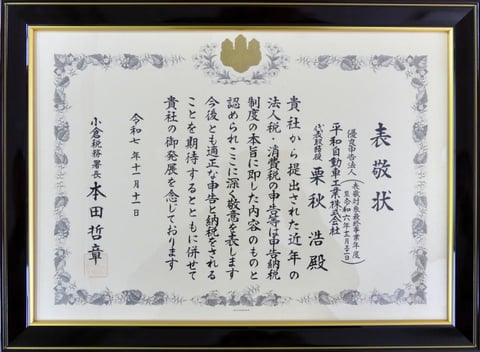 表敬状
優良申告法人
(表敬対象最終事業年度
至令和六年十二月三十一日)
平和自動車工業株式会社
代表取締役 栗秋 浩殿
貴社から提出された近年の
法人税・消費税の申告等は申告納税
制度の本旨に即した内容のものと
認められここに深く敬意を表します
今後とも適正な申告と納税をされる
ことを期待するとともに併せて
貴社の御発展を念じております
令和七年十一月十一日
小倉税務署長 本田哲章